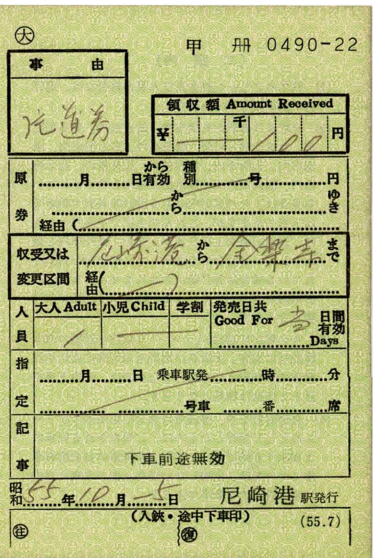 大
甲 冊 0490-22
事由
片道券
領収額 Amount Received
千
¥ 100 円
原券
から 種
月 日有効 別 号 円
から ゆき
経由(
収受又は変更区間
尼崎港 から まで
経由( )
人員
大人 Adult 小児 Child 学割
発売日共 Good For 当 日間有効 Days
指定
月 日 乗車駅発 時 分
号車 番 席
記事
下車前途無効
昭和 55 年 10 月 -5 日 尼崎港 駅発行
(入鋏・途中下車印) (55.7)
注 復